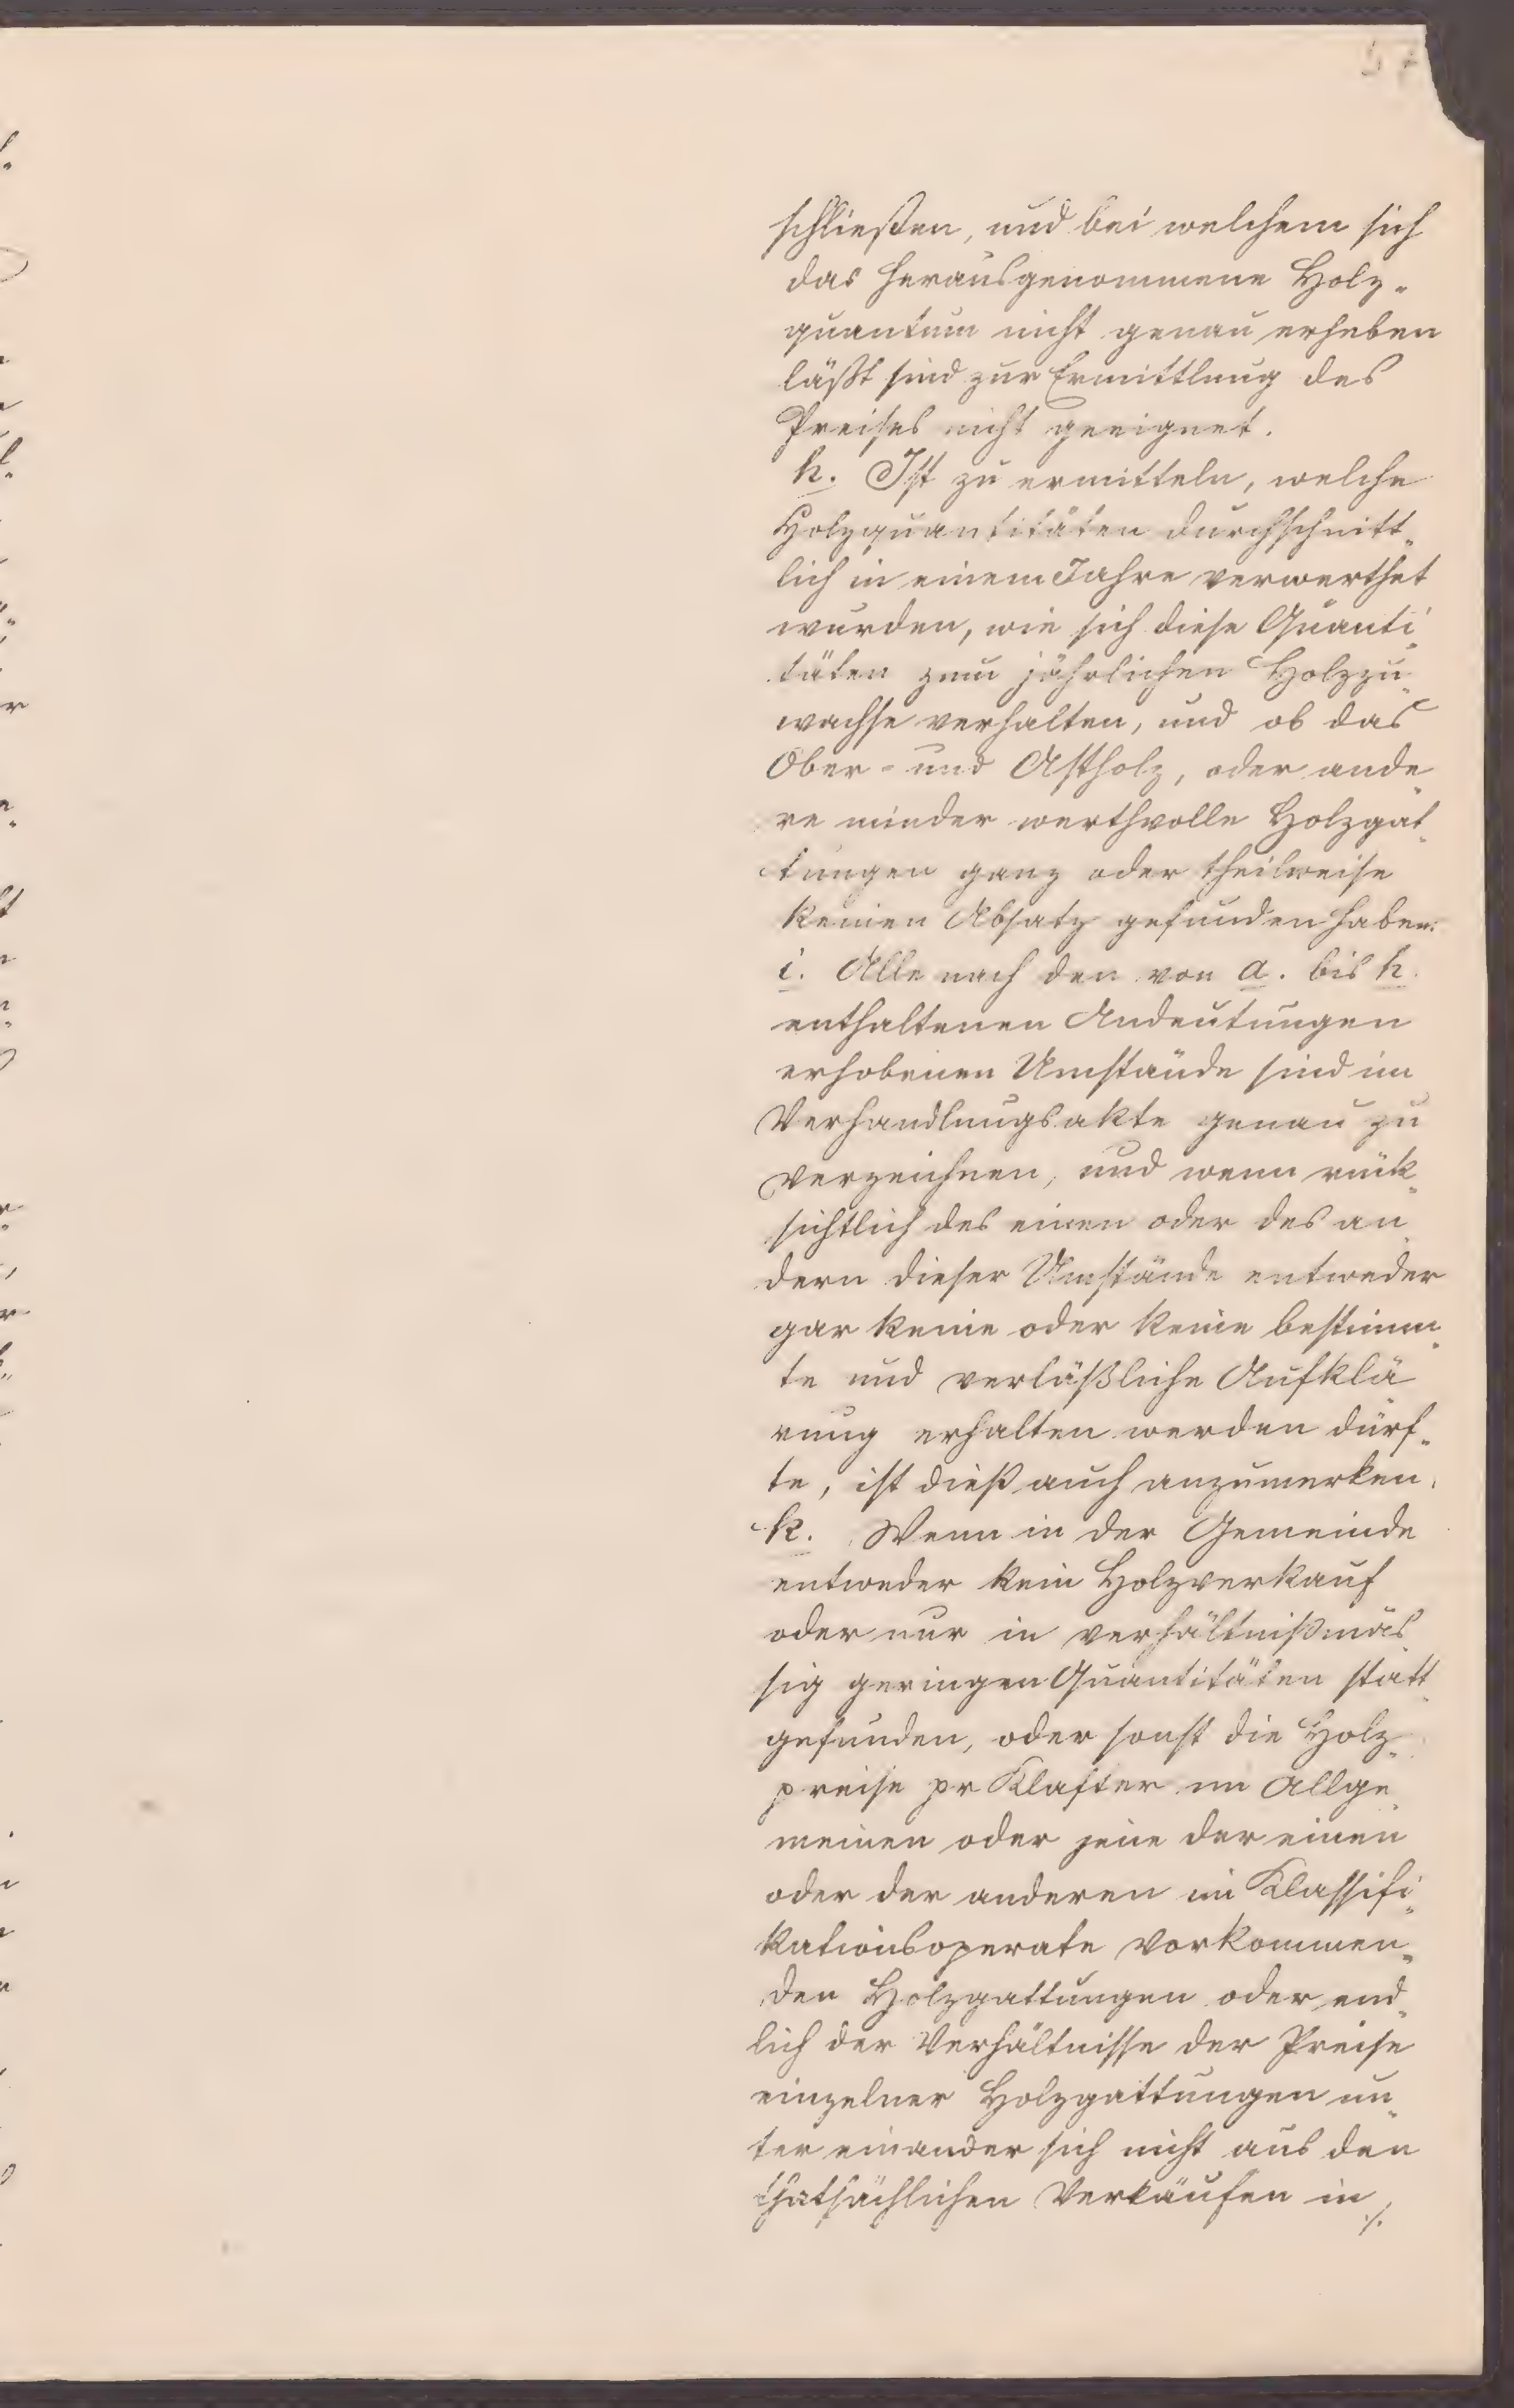 schließen, und bei welchem sich
das herausgenommene Holz-
quantum nicht genau erheben
läßt sind zur Ermittlung des
Preises nicht geeignet.
h. Ist zu ermitteln, welche
Holzquantitäten durchschnitt-
lich in einem Jahre verwerthet
wurden, wie sich diese Quanti-
täten zum jährlichen Holzzu-
wachse verhalten, und ob das
Ober- und Astholz, oder ande-
re minder werthvolle Holzgat-
tungen ganz oder theilweise
keinen Absatz gefunden haben.
i. Alle nach den von a. bis h.
enthaltenen Andeutungen
erhobenen Umstände sind im
Verhandlungsakte genau zu
verzeichnen, und wenn rück-
sichtlich des einen oder des an-
dern dieser Umstände entweder
gar keine oder keine bestimm-
te und verläßliche Aufklä
rung erhalten werden dürf-
te, ist dieß auch anzumerken.
k. Wenn in der Gemeinde
entweder kein Holzverkauf
oder nur in verhältnißmäs-
sig geringen Quantitäten statt-
gefunden, oder sonst die Holz-
preise pr Klafter im Allge-
meinen oder jene der einen
oder der anderen im Klassifi-
kationsoperate vorkommen-
den Holzgattungen oder end-
lich der Verhältnisse der Preise
einzelner Holzgattungen un-
ter einander sich nicht aus den
thatsächlichen Verkäufen in ./.